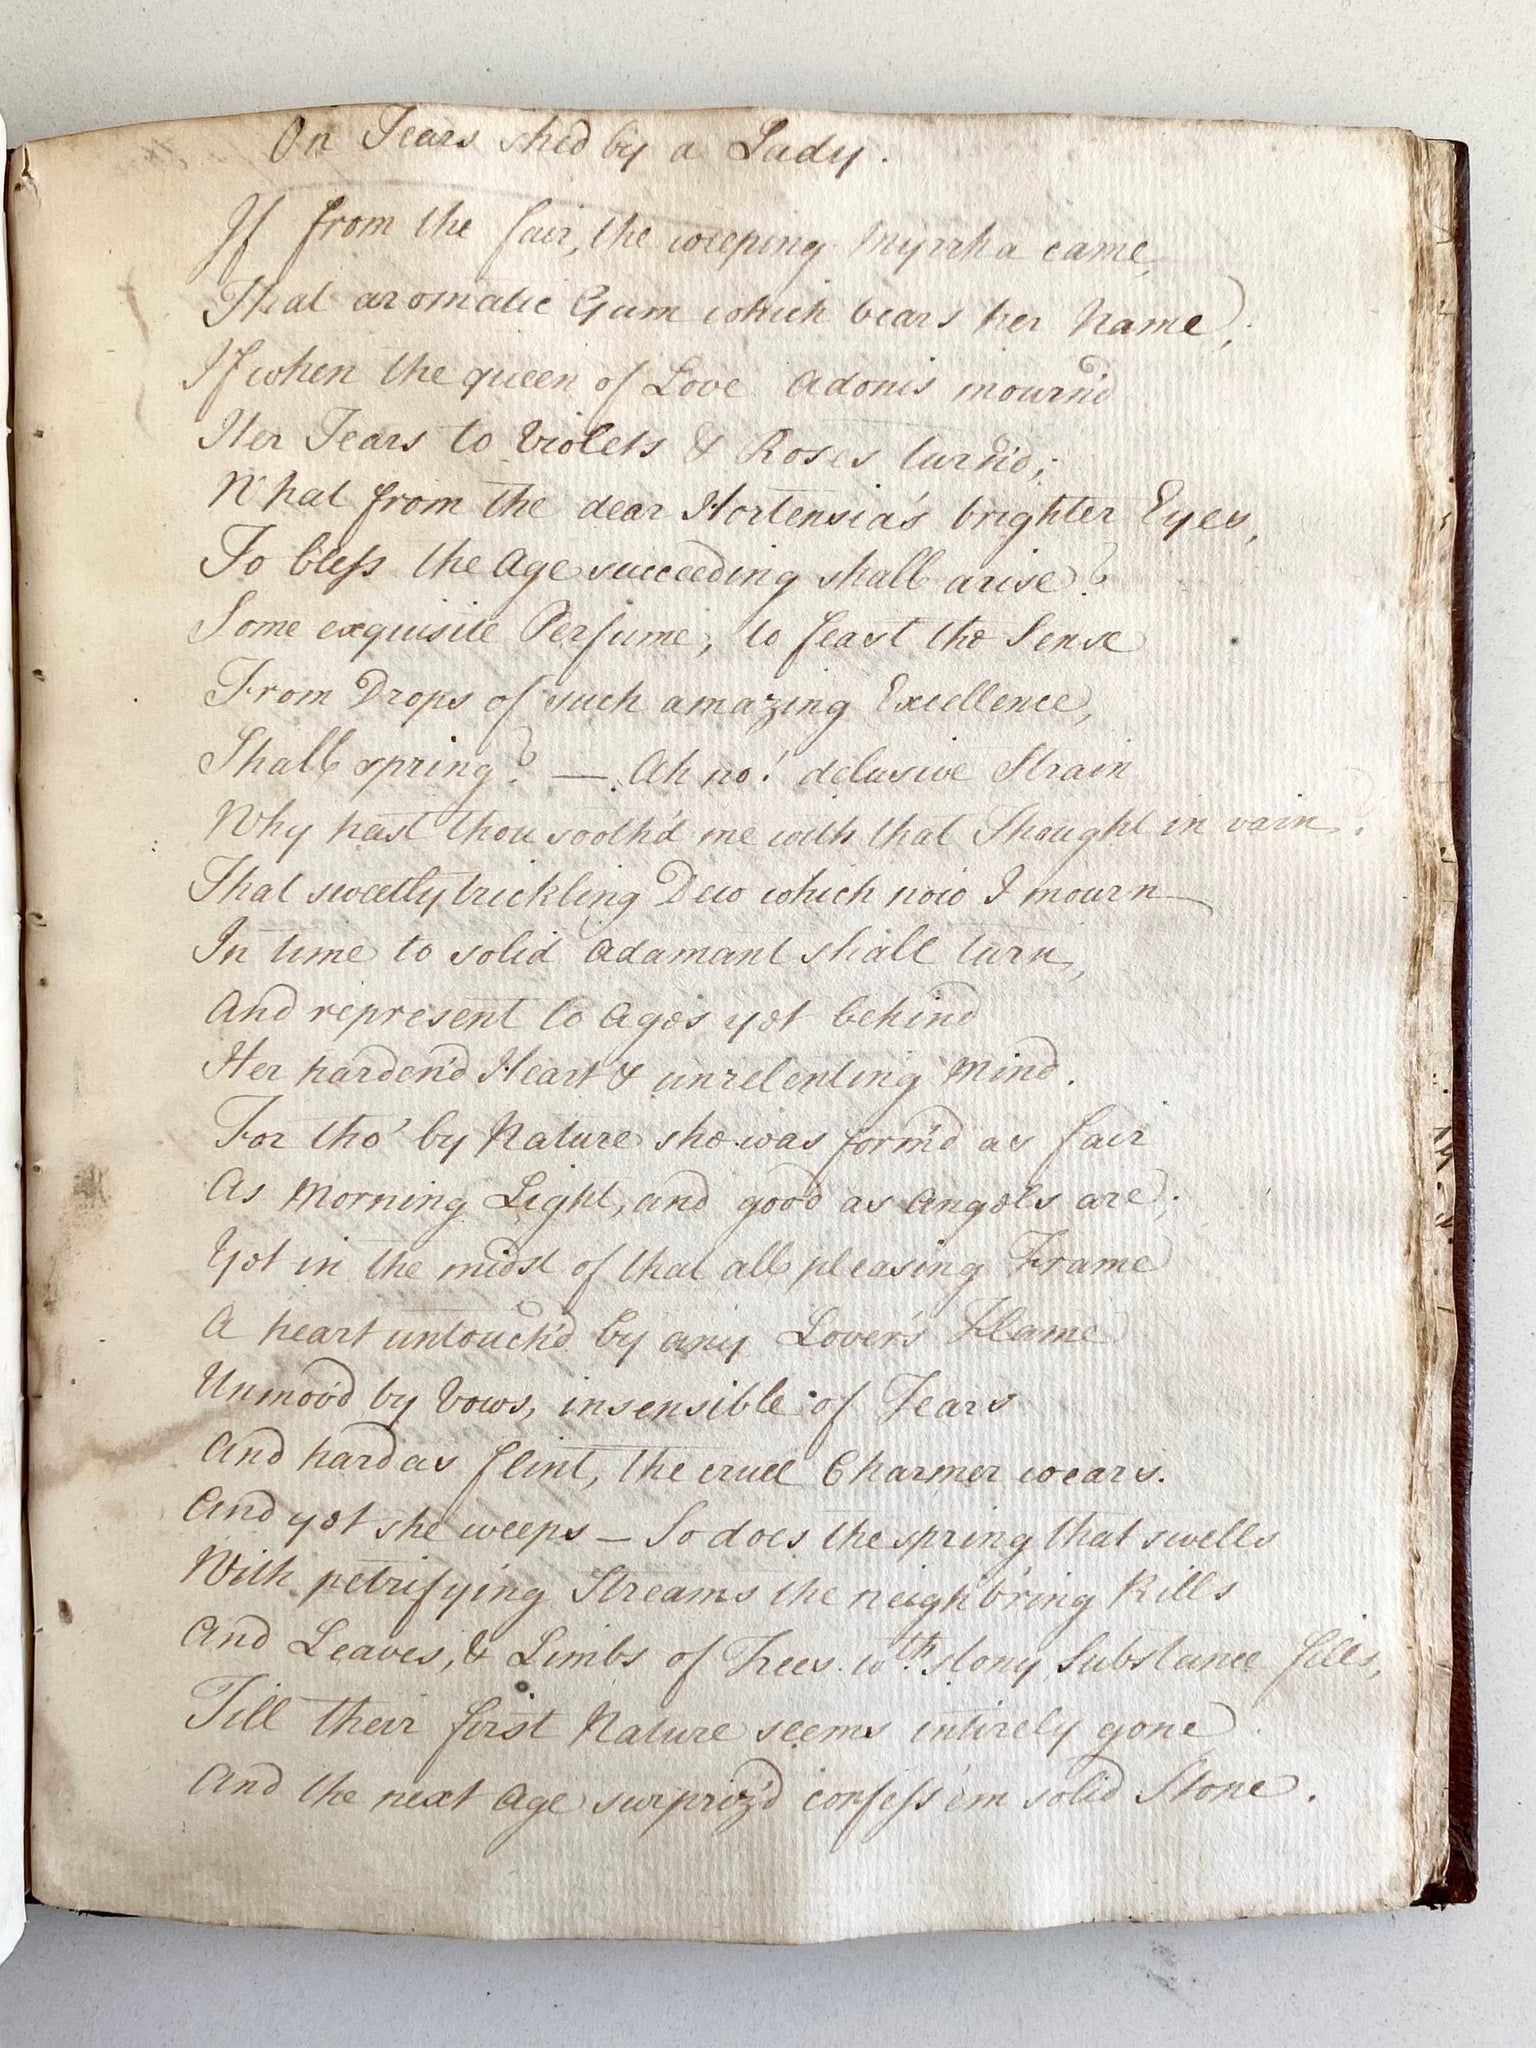 On Tears shed by a Lady.
If from the fair, the weeping Myrrha came,
That aromatic Gum which bears her Name;
If when the queen of Love Adonis mourn'd
Her Tears to Violets & Roses turn'd;
What from the dear Hortensia's brighter Eyes,
To bless the Age succeeding shall arise?
Some exquisite Perfume, to feast the Sense
From Drops of such amazing Excellence,
Shall spring? — Ah no! delusive Strain
Why hast thou sooth'd me with that Thought in vain?
That sweetly trickling Dew which now I mourn
In time to solid Adamant shall turn,
And represent to Ages yet behind
Her harden'd Heart & unrelenting Mind.
For tho' by Nature she was form'd as fair
As Morning Light, and good as Angels are;
Yet in the midst of that all pleasing Frame
A heart untouch'd by any Lover's Flame
Unmov'd by Vows, insensible of Tears
And hard as flint, the cruel Charmer wears.
And yet she weeps — So does the spring that swells
With petrifying Streams the neighb'ring Rills
And Leaves, & Limbs of Trees wth. stony Substance fills,
Till their first Nature seems intirely gone
And the next Age surpriz'd confess 'em solid Stone.